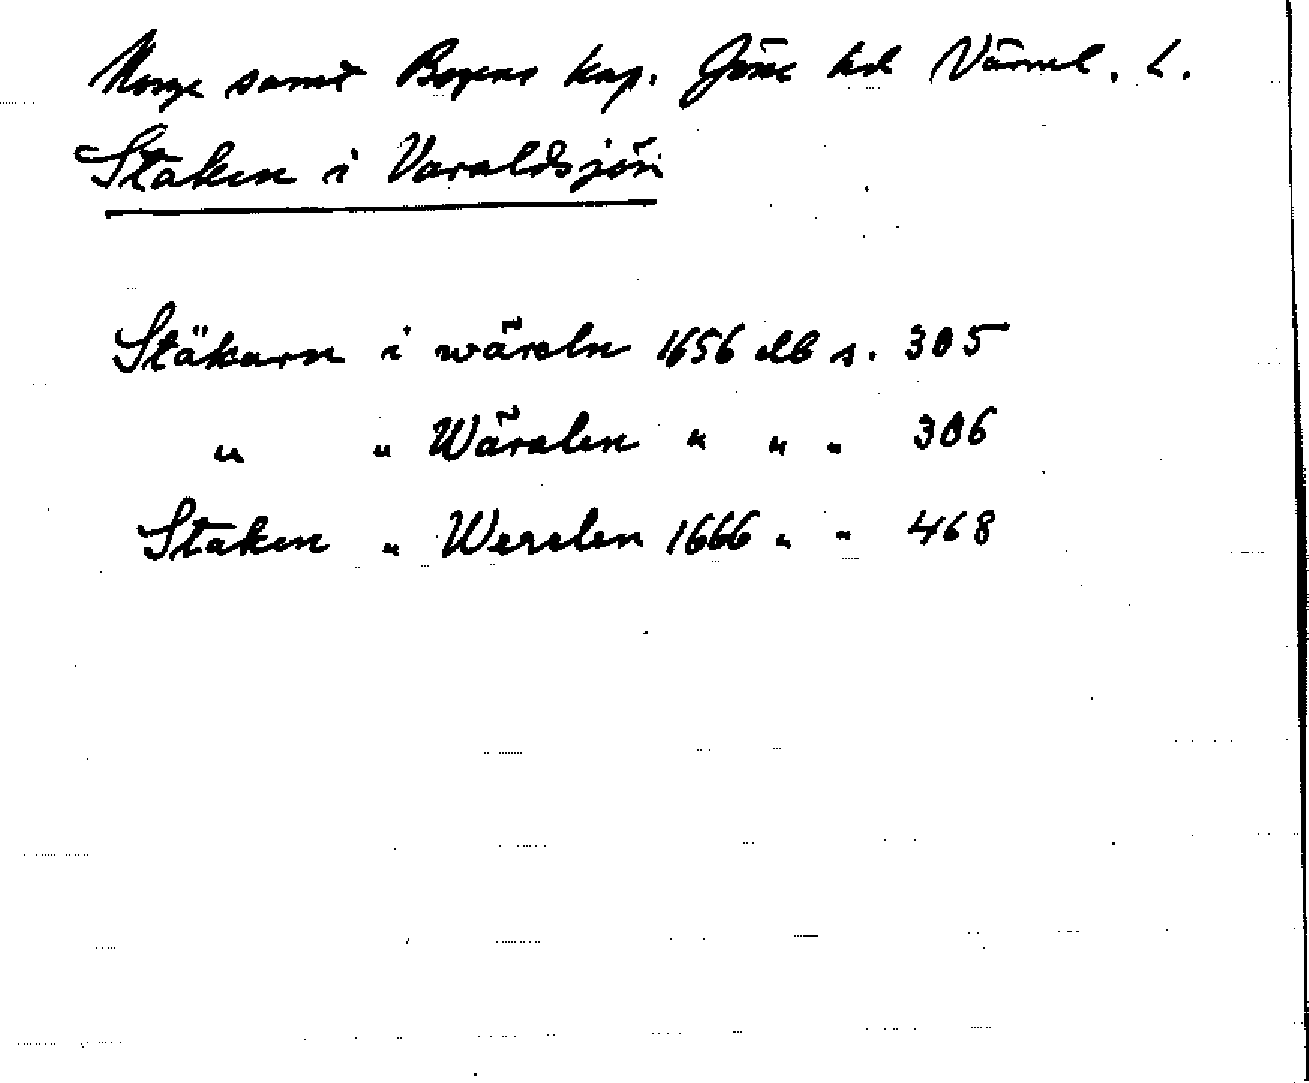 Norge samt Bogens kap. Jösse hd Värml. L.
Staken i Varaldsjön
Stäkarn i wäraln 1656 db s. 305
" " Wäralen " " " 306
Staken " Weralen 1666 " " 468